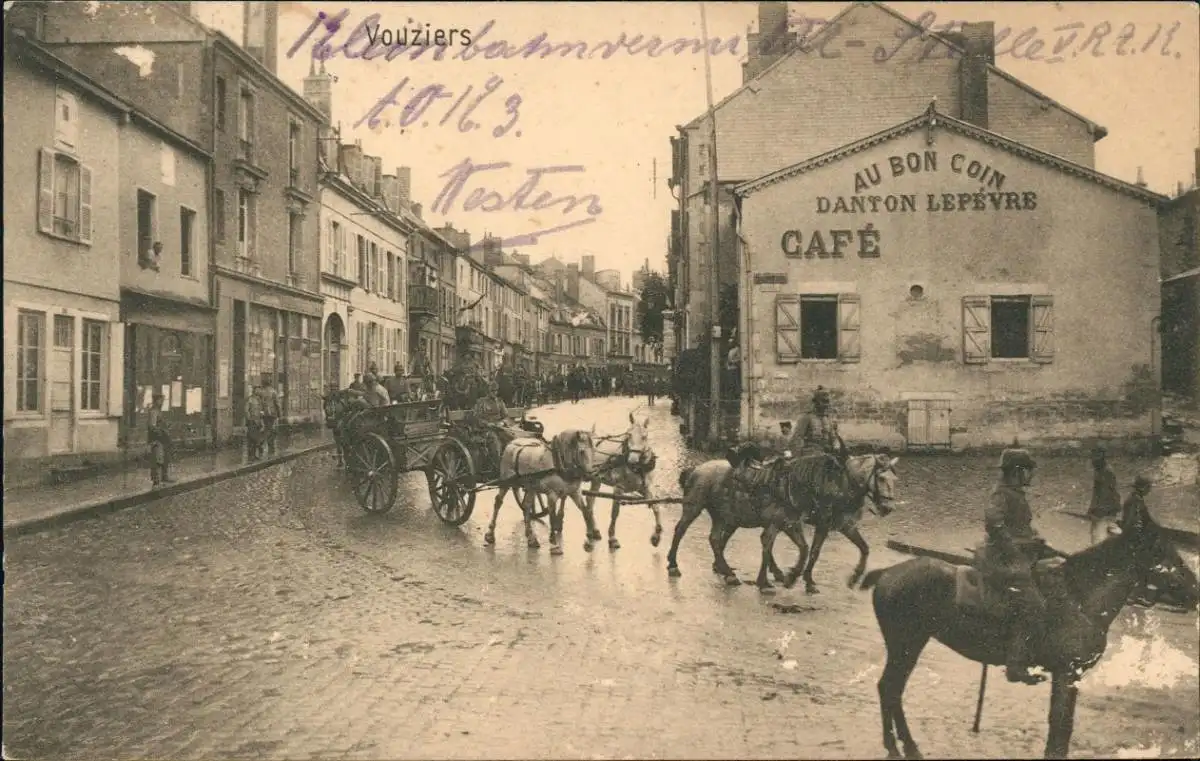 Vouziers
Kleinbahnvermittl.-Stelle V.R.2.K.
A.O.K. 3.
Westen
AU BON COIN
DANTON LEPÉVRE
CAFÉ